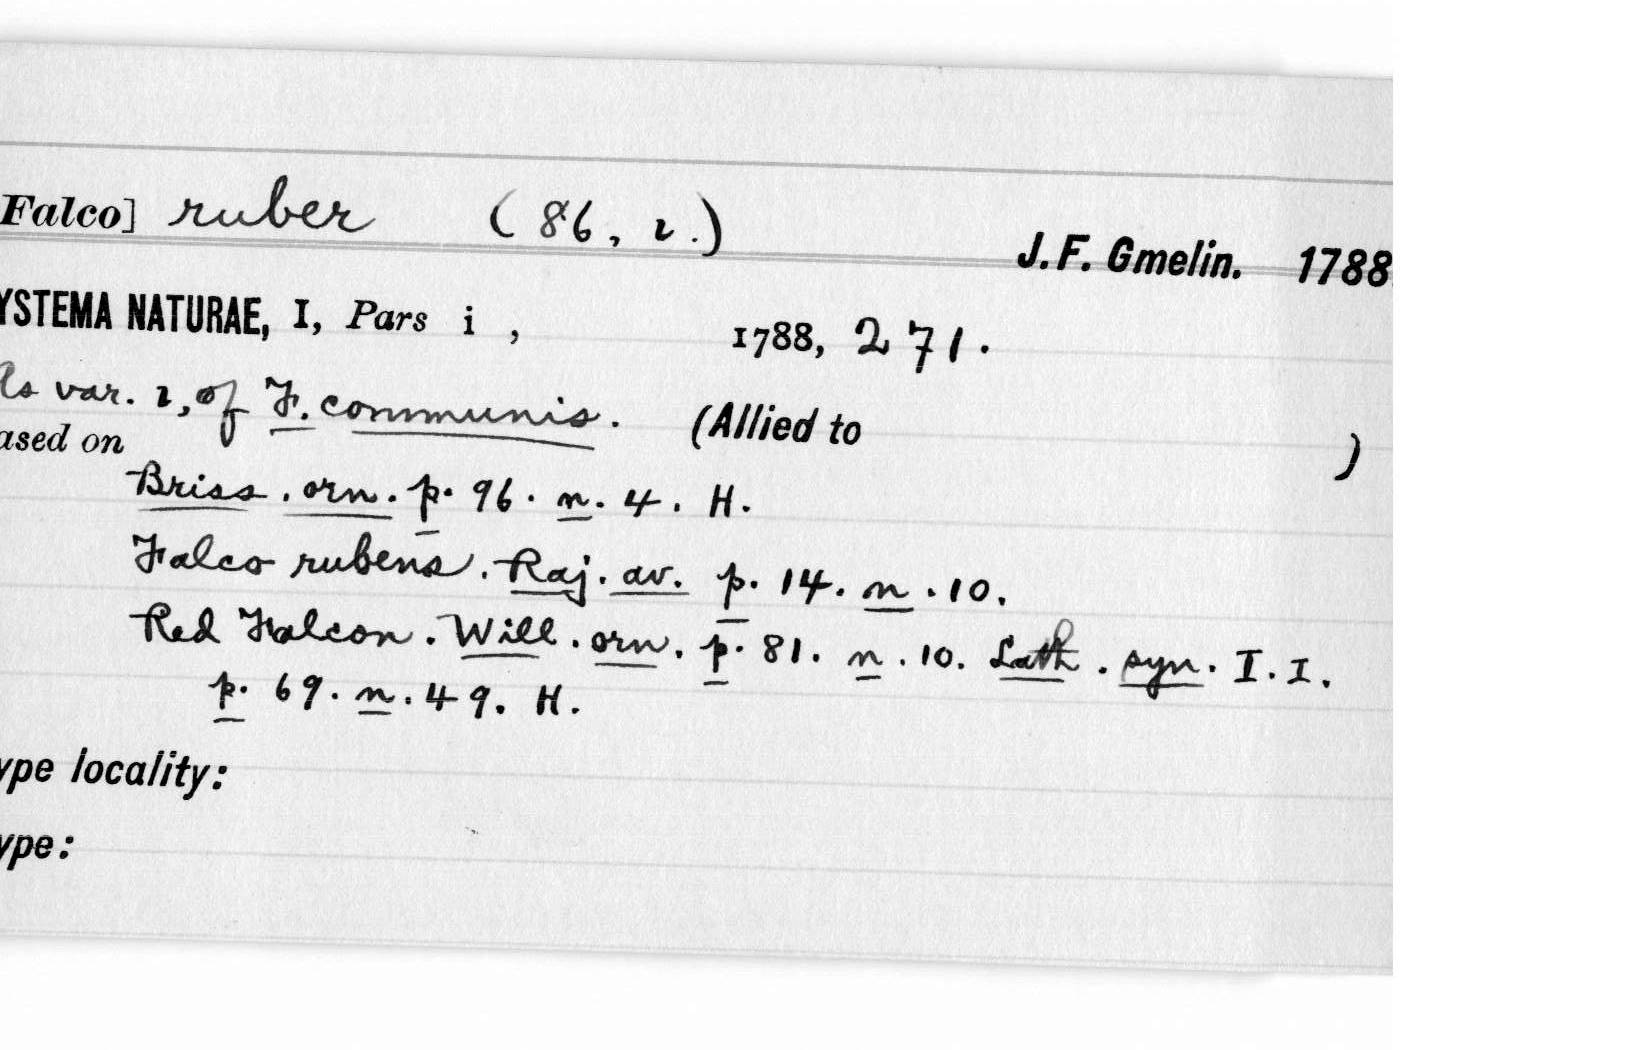 Falco] ruber (86, ι.)
J. F. Gmelin. 1788
YSTEMA NATURAE, I, Pars i, 1788, 271.
As var. ι, of F. communis. (Allied to )
ased on
Briss. orn. p. 96. n. 4. H.
Falco rubens. Raj. av. p. 14. n. 10.
Red Falcon. Will. orn. p. 81. n. 10. Lath. syn. I. I.
p. 69. n. 49. H.
ype locality:
ype: